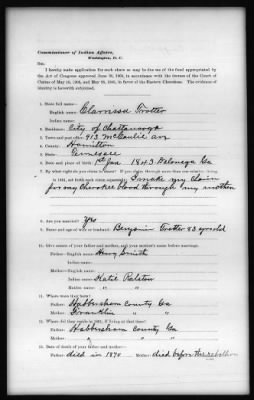 Commissioner of Indian Affairs,
Washington, D. C.
Sir:
I hereby make application for such share as may be due me of the fund appropriated by
the Act of Congress approved June 30, 1906, in accordance with the decrees of the Court of
Claims of May 18, 1905, and May 28, 1906, in favor of the Eastern Cherokees. The evidence
of identity is herewith subjoined.
1. State full name—
English name: Clarrissa Trotter
Indian name:
2. Residence: City of Chattanooga
3. Town and post office: 913 McCallie av
4. County: Hamilton
5. State: Tennessee
6. Date and place of birth: 1st Jan 1843 Dahlonega Ga
7. By what right do you claim to share? If you claim through more than one relative living
in 1851, set forth each claim separately: I make my claim
for my Cherokee blood through my mother
8. Are you married? Yes
9. Name and age of wife or husband: Benjamin Trotter 83 yrs old
10. Give names of your father and mother, and your mother's name before marriage.
Father—English name: Henry Smith
Indian name:
Mother—English name: Katie Ralston
Indian name:
Maiden name:
11. Where were they born?
Father: Habbersham County Ga
Mother: Franklin " "
12. Where did they reside in 1851, if living at that time?
Father: Habbersham County Ga
Mother: " "
13. Date of death of your father and mother—
Father: died in 1870 Mother: died before the rebellion